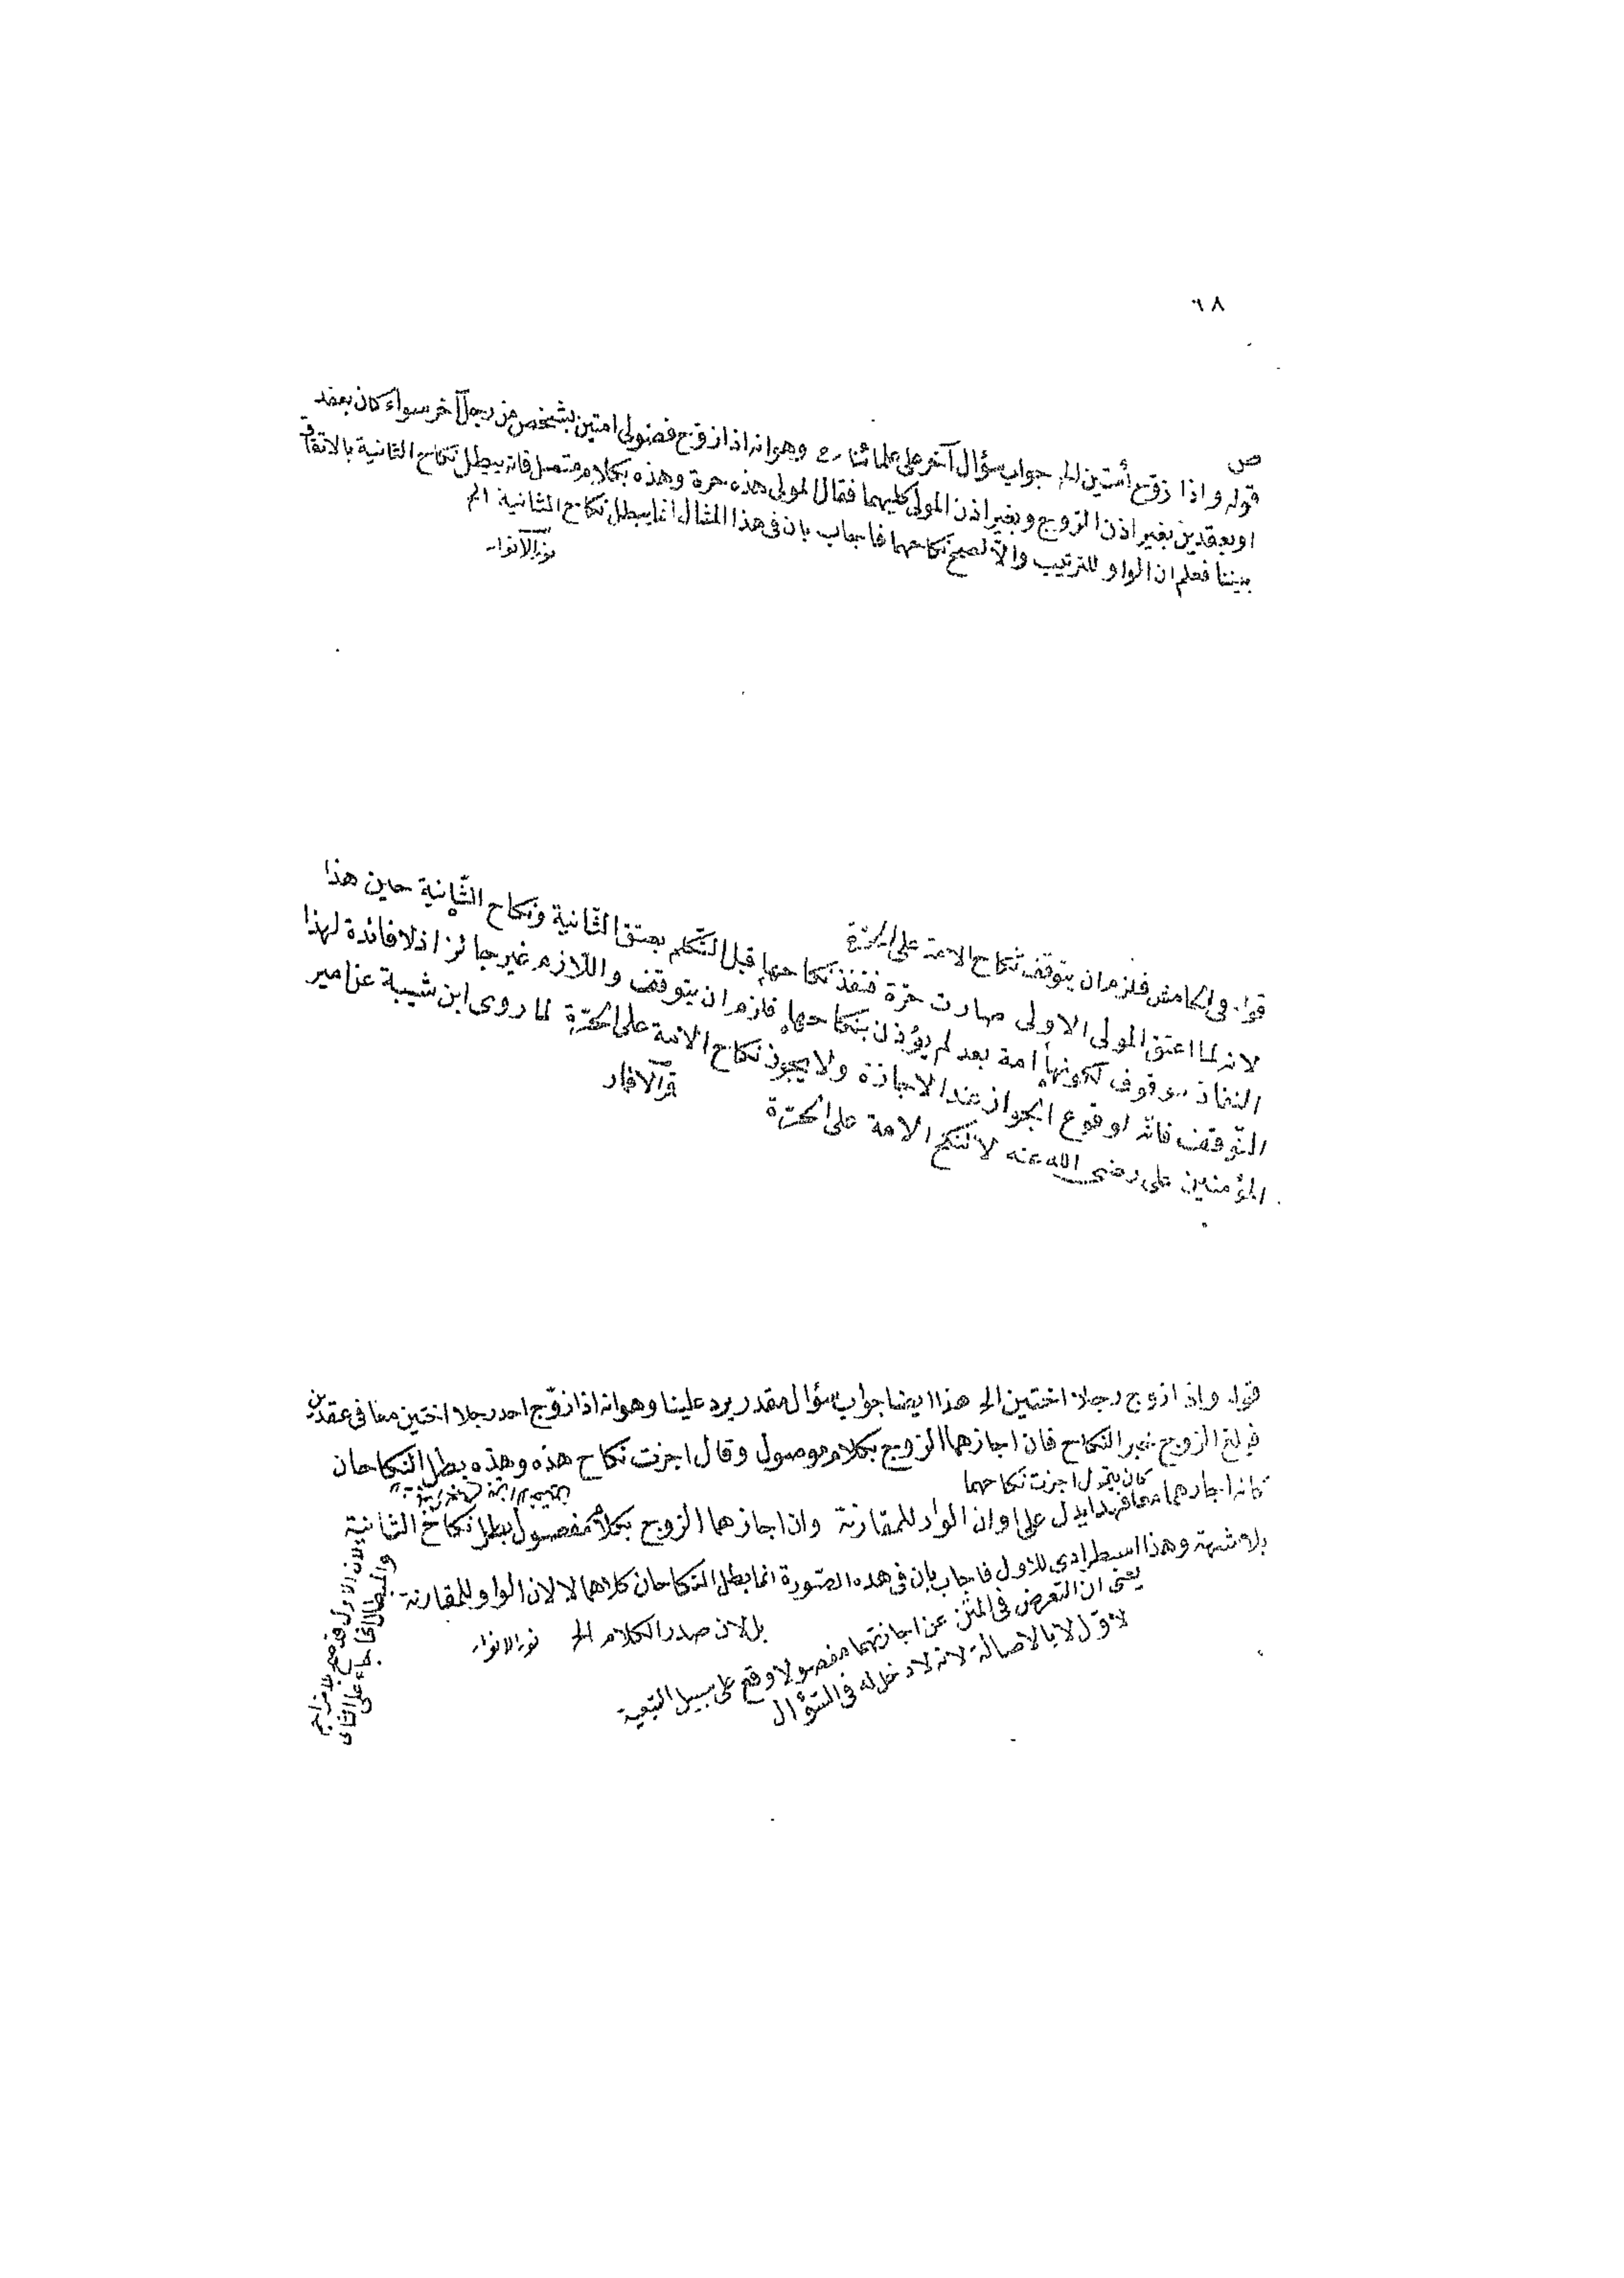 ٦٨
ص
قوله واذا زوّج أمتين الخ جواب سؤال آخر على علمائنا رح وهو انه اذا زوّج فضولى امتين بشخص من رجل آخر سواء كان بعقد
او بعقدين بغير اذن الزوج وبغير اذن المولى كليهما فقال المولى هذه حرة وهذه بكلام متصل فانه يبطل نكاح الثانية بالاتفاق
بيننا فعلم ان الواو للترتيب والّا لصح نكاحهما فاجاب بان فى هذا المثال انما يبطل نكاح الثانية الخ
نور الانوار
قوله فى الهامش فلزم ان يتوقف نكاح الامة على الحرّة
لانه لما اعتق المولى الاولى صارت حرّة فنفذ نكاحها قبل التكلم بعتق الثانية ونكاح الثانية حين هذا
النفاذ موقوف لكونها امة بعد لم يؤذن بنكاحها فلزم ان يتوقف واللازم غير جائز اذ لا فائدة لهذا
التوقف فانّه لوقوع الجواز عند الاجازة ولا يجوز نكاح الامة على الحرّة لما روى ابن شيبة عن امير
المؤمنين على رضى الله عنه لا تنكح الامة على الحرّة
قمر الاقمار
قوله واذا زوج رجلا اختين الخ هذا ايضا جواب سؤال مقدر يرد علينا وهو انه اذا زوّج احد رجلا اختين معا فى عقدين
فبلغ الزوج خبر النكاح فان اجازهما الزوج بكلام موصول وقال اجزت نكاح هذه وهذه بطل النكاحان
كان يقول اجزت نكاحهما
كانه اجازهما معا فهذا يدل على اوان الواو للمقارنة وان اجازهما الزوج بكلام مفصول بطل نكاح الثانية
بلا شبهة وهذا استطرادى للاول فاجاب بان فى هذه الصّورة انما بطل النكاحان كلاهما لا لان الواو للمقارنة
بل لان صدر الكلام الخ نور الانوار
يعنى ان التعرض فى المتن عن اجازتهما مفصولا وقع على سبيل التبعية
لاوّل لا بالاصالة لانه لا دخل له فى السّؤال
لان الاول قد صح بلا مزاحم
والبطلان انما جاء على الثانى